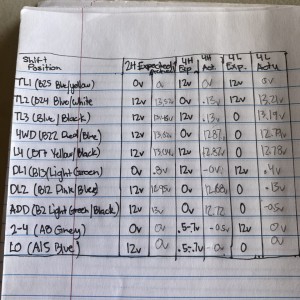 Shift Position 2H Expected Actual 4H Exp. 4H Act. 4L Exp. 4L Actu
TL1 (B25 Blue/yellow) 0v 0v 12v 0v 12v 0v
TL2 (B24 Blue/White 12v 13.52v 0v .13v 12v 13.21v
TL3 (Blue/Black) 12v 0v .13v 0 13.19v
4WD (B22 Red/Blue) 12v 0v 12.87v 0
L4 (D17 Yellow/Black) 12v 13.04v 0v 12.87v 0 12.78v
DL1 (B13/Light Green) 0v .8v 12v -0v 12v
DL2 (B12 Pink Blue) 12v 12.95v 0v 12.68v 0 13v
ADD (B2 Light Green/Black) 12v 13v 0v 12.72 0 -0.5v
2-4 (A8 Grey) 0v 0v .5-.7v -0.5v 12v 0v
L0 (A15 Blue) 12v 0v .5-.7v -0v 0 0v